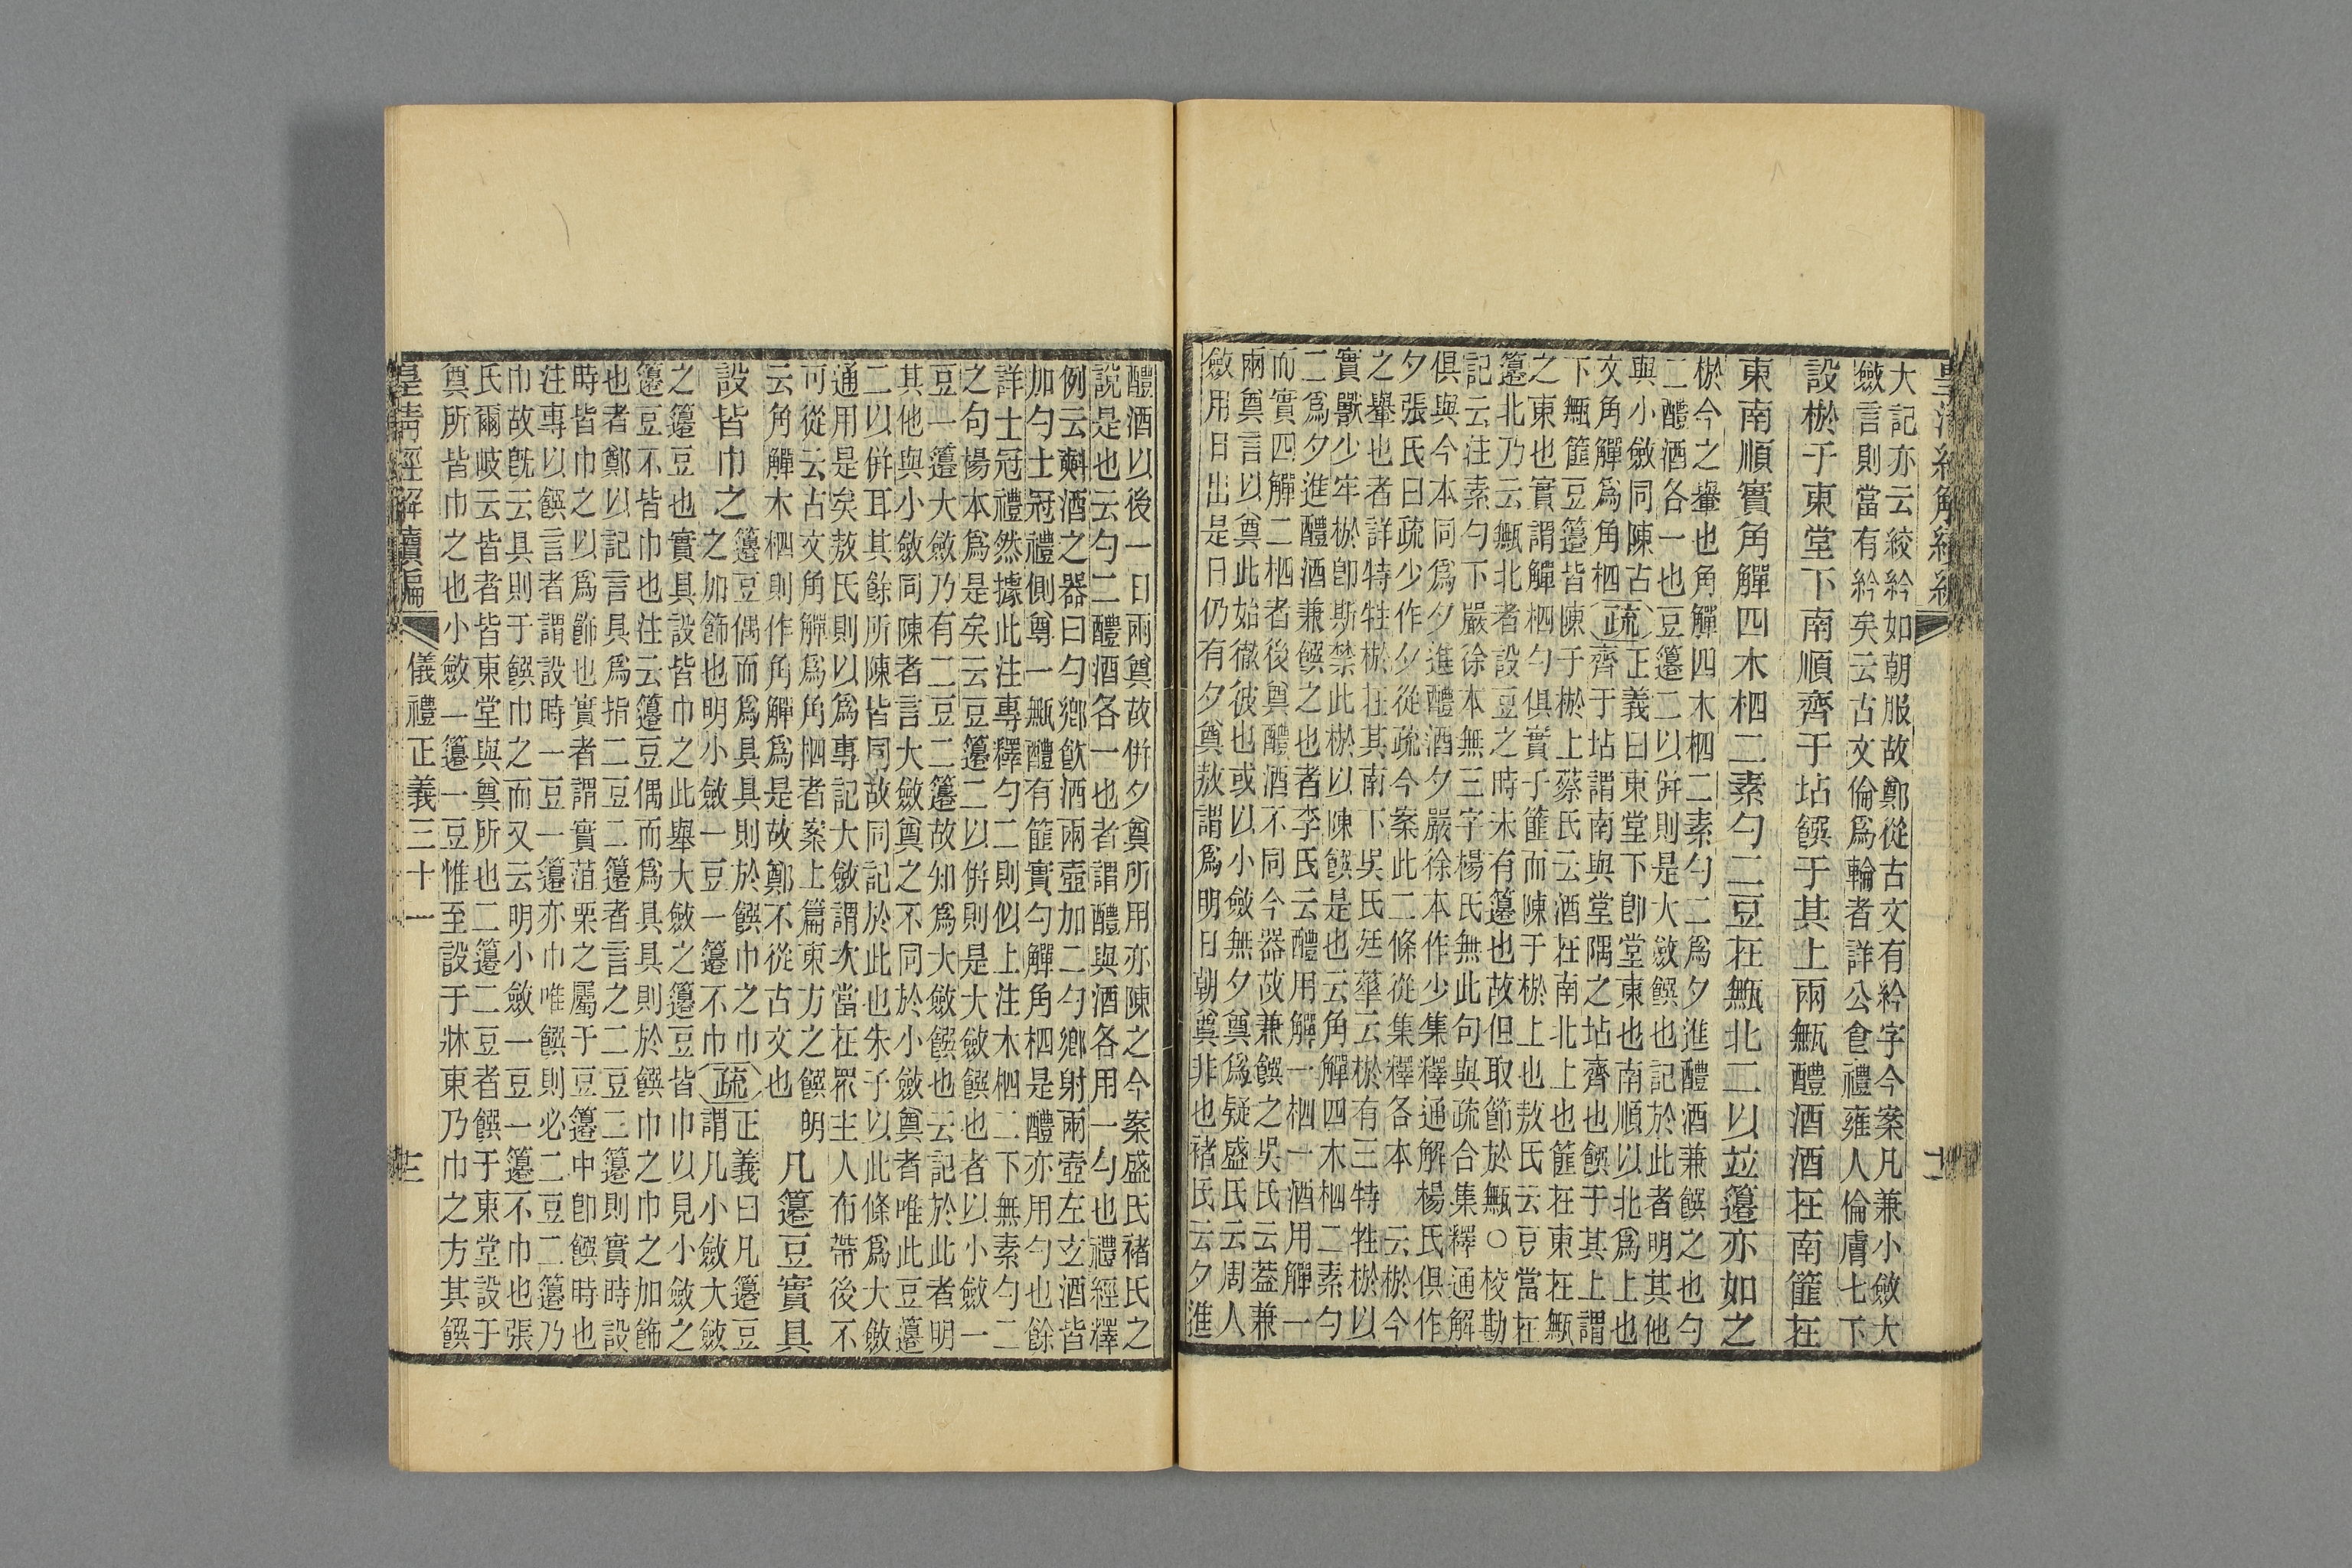 大記亦云絞紟如朝服故鄭從古文有紟字今案凡兼小斂大
斂言則當有紟矣云古文倫爲輪者詳公食禮雍人倫膚七下
設棜于東堂下南順齊于坫饌于其上兩甒醴酒酒在南篚在
東南順實角觶四木柶二素勺二豆在甒北二以竝籩亦如之
棜今之轝也角觶四木柶二素勺二爲夕進醴酒兼饌之也勺
二醴酒各一也豆籩二以併則是大斂饌也記於此者明其他
與小斂同陳古
文角觶爲角柶
疏
正義曰東堂下卽堂東也南順以北爲上也
齊于坫謂南與堂隅之坫齊也饌于其上謂
下甒篚豆籩皆陳于棜上蔡氏云酒在南北上也篚在東在甒
之東也實謂觶柶勺俱實于篚而陳于棜上也敖氏云豆當在
籩北乃云甒北者設豆之時未有籩也故但取節於甒○校勘
記云注素勺下嚴徐本無三字楊氏無此句與疏合集釋通解
俱與今本同爲夕進醴酒夕嚴徐本作少集釋通解楊氏俱作
夕張氏曰疏少作夕從疏今案此二條從集釋各本　云棜今
之轝也者詳特牲棜在其南下吳氏廷華云棜有三特牲棜以
實獸少牢棜卽斯禁此棜以陳饌是也云角觶四木柶二素勺
二爲夕進醴酒兼饌之也者李氏云醴用觶一柶一酒用觶一
而實四觶二柶者後奠醴酒不同今器故兼饌之吳氏云葢兼
兩奠言以奠此始徹彼也或以小斂無夕奠爲疑盛氏云周人
斂用日出是日仍有夕奠敖謂爲明日朝奠非也褚氏云夕進
醴酒以後一日兩奠故併夕奠所用亦陳之今案盛氏褚氏之
說是也云勺二醴酒各一也者謂醴與酒各用一勺也禮經釋
例云㪺酒之器曰勺鄉飮酒兩壺加二勺鄉射兩壺左玄酒皆
加勺士冠禮側尊一甒醴有篚實勺觶角柶是醴亦用勺也餘
詳士冠禮然據此注專釋勺二則似上注木柶二下無素勺二
之句楊本爲是矣云豆籩二以併則是大斂饌也者以小斂一
豆一籩大斂乃有二豆二籩故知爲大斂饌也云記於此者明
其他與小斂同陳者言大斂奠之不同於小斂奠者唯此豆籩
二以併耳其餘所陳皆同故同記於此也朱子以此條爲大斂
通用是矣敖氏則以爲專記大斂謂次當在眾主人布帶後不
可從云古文角觶爲角柶者案上篇東方之饌　明
云角觶木柶則作角觶爲是故鄭不從古文也
凡籩豆實具
設皆巾之
籩豆偶而爲具具則於饌巾之巾
之加飾也明小斂一豆一籩不巾
疏
正義曰凡籩豆
謂凡小斂大斂
之籩豆也實具設皆巾之此舉大斂之籩豆皆巾以見小斂之
籩豆不皆巾也注云籩豆偶而爲具具則於饌巾之巾之加飾
也者鄭以記言具爲指二豆二籩者言之二豆二籩則實時設
時皆巾之以爲飾也實者謂實菹栗之屬于豆籩中卽饌時也
注專以饌言者謂設時一豆一籩亦巾唯饌則必二豆二籩乃
巾故旣云具則于饌巾之而又云明小斂一豆一籩不巾也張
氏爾岐云皆者皆東堂與奠所也二籩二豆者饌于東堂設于
奠所皆巾之也小斂一籩一豆惟至設于牀東乃巾之方其饌
皇淸經解續編
儀禮正義三十一